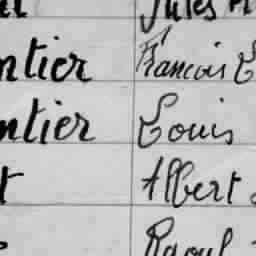 Jules
ntier François
ntier Louis
t Albert
Raoul